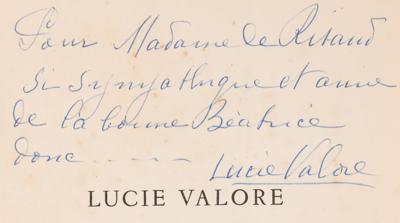 Pour Madame de Ritaud
si sympathique et amie
de la bonne Béatrice
donc......
Lucie Valore
LUCIE VALORE